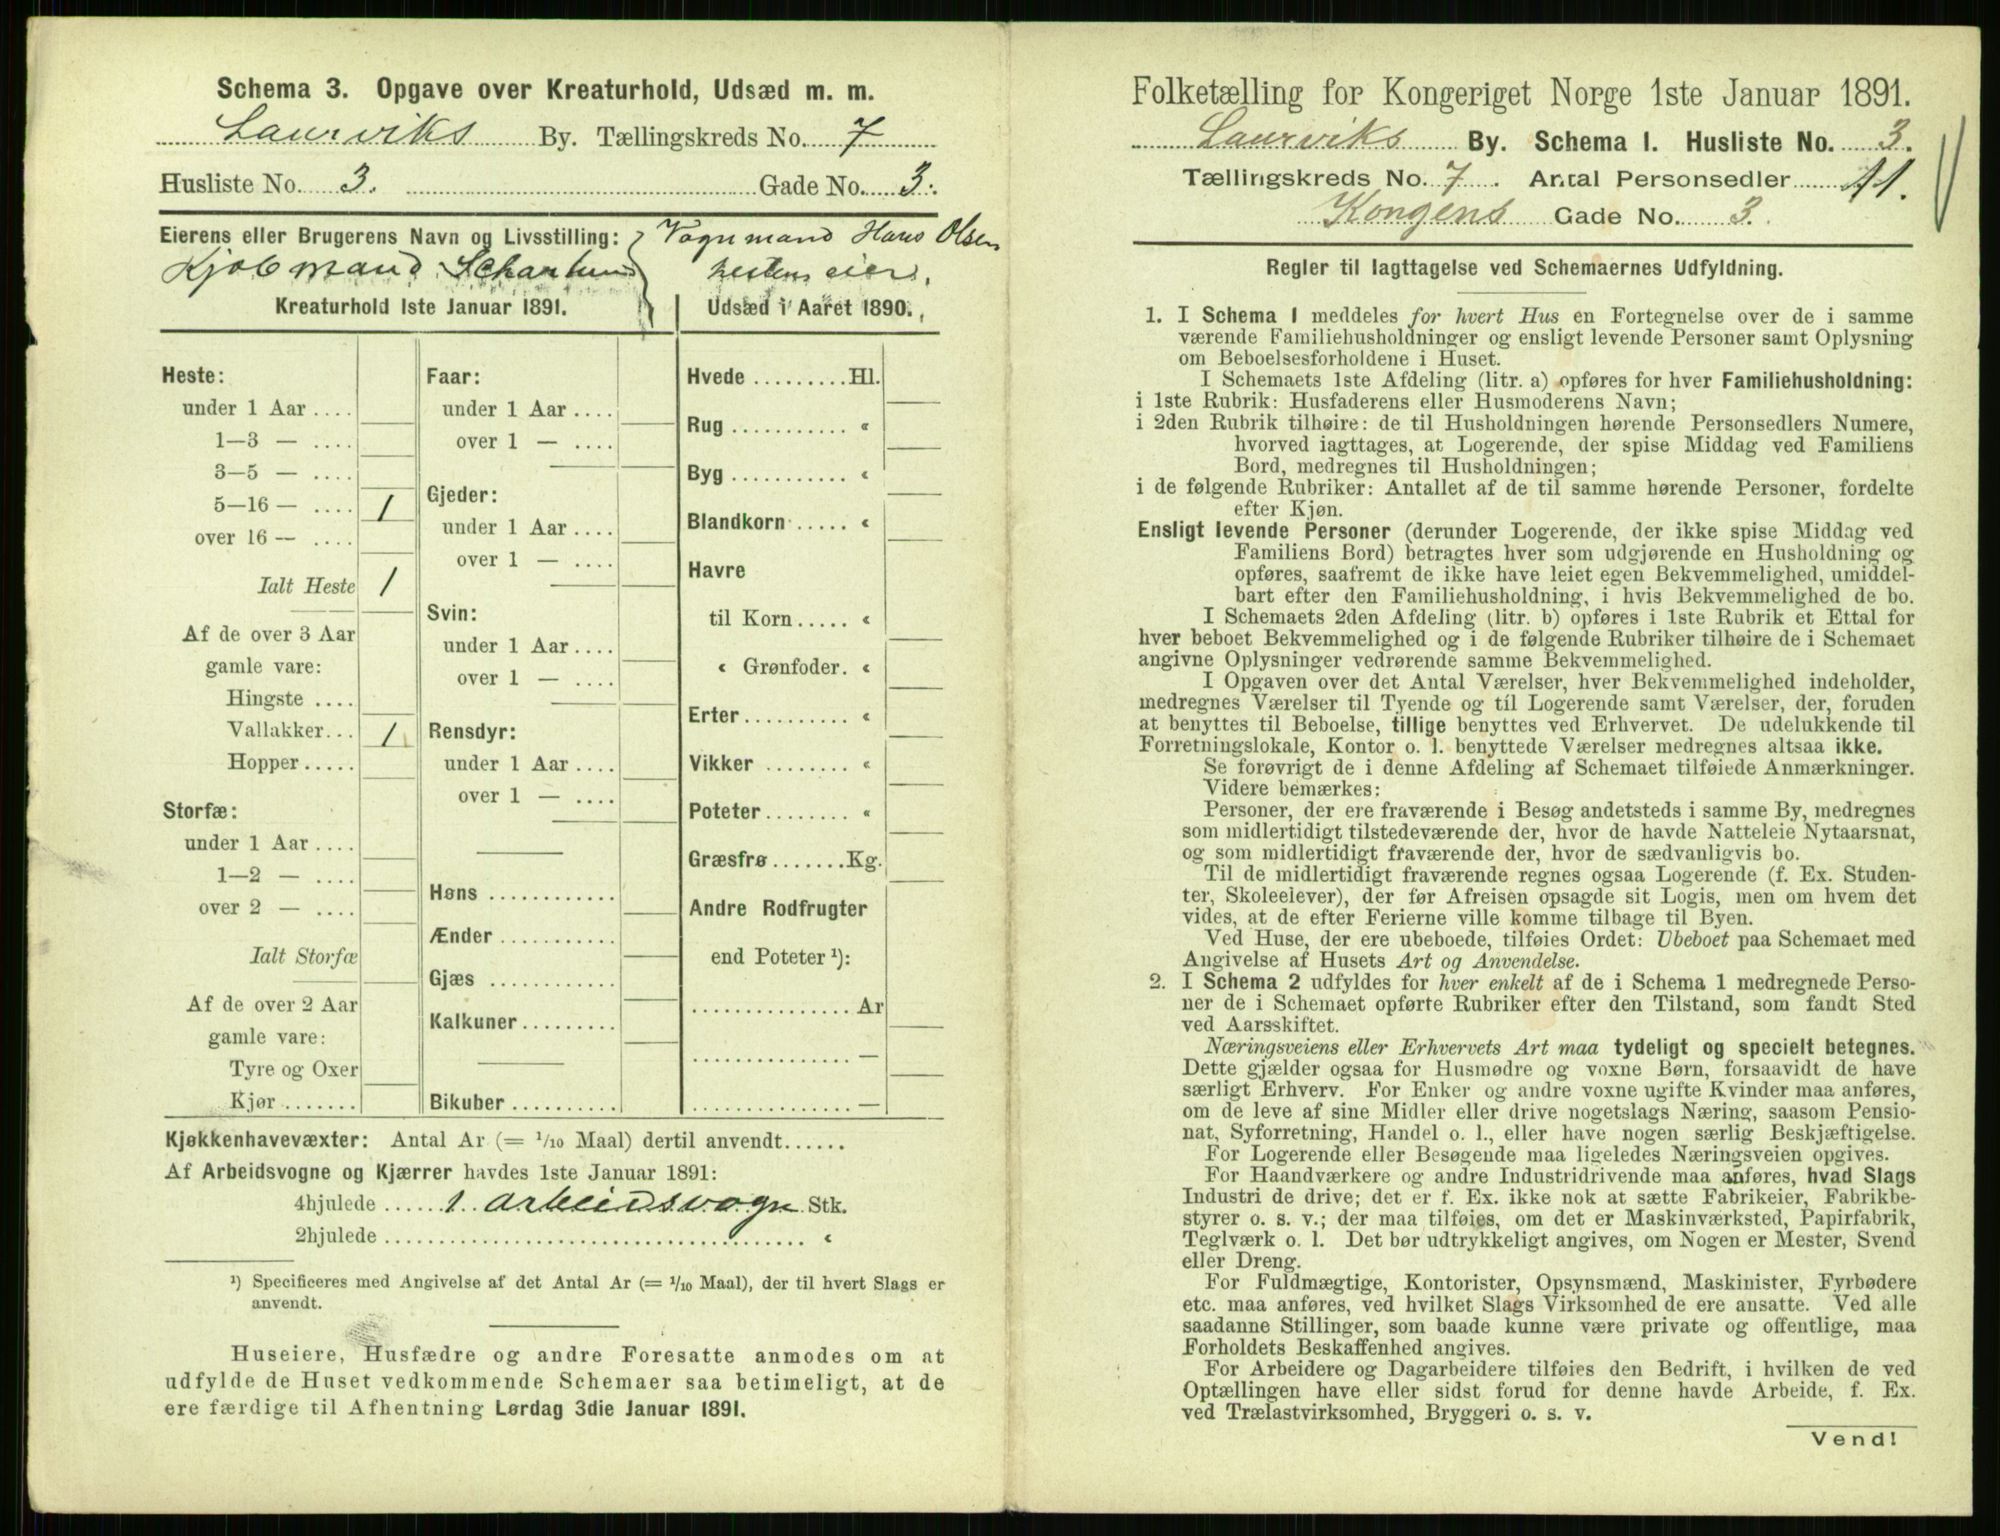 Schema 3. Opgave over Kreaturhold, Udsæd m. m.
Laurviks By. Tællingskreds No. 7
Husliste No. 3. Gade No. 3.
Eierens eller Brugerens Navn og Livsstilling: Vognmand Hans Olsen
Kjøbmand hestens eier.
Kreaturhold 1ste Januar 1891. Udsæd i Aaret 1890.
Heste:
under 1 Aar ....
1—3 — ....
3—5 — ....
5—16 — .... 1
over 16 — ....
Ialt Heste 1
Af de over 3 Aar
gamle vare:
Hingste ....
Vallakker... 1
Hopper.....
Storfæ:
under 1 Aar ....
1—2 — ....
over 2 — ....
Ialt Storfæ
Af de over 2 Aar
gamle vare:
Tyre og Oxer
Kjør.......
Faar:
under 1 Aar ....
over 1 — ....
Gjeder:
under 1 Aar ....
over 1 — ....
Svin:
under 1 Aar ....
over 1 — ....
Rensdyr:
under 1 Aar ....
over 1 — ....
Høns ............
Ænder ...........
Gjæs ............
Kalkuner.........
Bikuber..........
Hvede .........Hl.
Rug ........... «
Byg ........... «
Blandkorn ..... «
Havre
til Korn..... «
« Grønfoder. «
Erter.......... «
Vikker ........ «
Poteter........ «
Græsfrø.......Kg.
Andre Rodfrugter
end Poteter ¹):
...............Ar
...............—
...............—
Kjøkkenhavevæxter: Antal Ar (= 1/10 Maal) dertil anvendt......
Af Arbeidsvogne og Kjærrer havdes 1ste Januar 1891:
4hjulede ......1 arbeidsvogn Stk.
2hjulede ...................................... «
¹) Specificeres med Angivelse af det Antal Ar (= 1/10 Maal), der til hvert Slags er
anvendt.
Huseiere, Husfædre og andre Foresatte anmodes om at
udfylde de Huset vedkommende Schemaer saa betimeligt, at de
ere færdige til Afhentning Lørdag 3die Januar 1891.
Folketælling for Kongeriget Norge 1ste Januar 1891.
Laurviks By. Schema I. Husliste No. 3.
Tællingskreds No. 7. Antal Personsedler 11.
Kongens Gade No. 3.
Regler til Iagttagelse ved Schemaernes Udfyldning.
1. I Schema I meddeles for hvert Hus en Fortegnelse over de i samme
værende Familiehusholdninger og ensligt levende Personer samt Oplysning
om Beboelsesforholdene i Huset.
I Schemaets 1ste Afdeling (litr. a) opføres for hver Familiehusholdning:
i 1ste Rubrik: Husfaderens eller Husmoderens Navn;
i 2den Rubrik tilhøire: de til Husholdningen hørende Personsedlers Numere,
hvorved iagttages, at Logerende, der spise Middag ved Familiens
Bord, medregnes til Husholdningen;
i de følgende Rubriker: Antallet af de til samme hørende Personer, fordelte
efter Kjøn.
Ensligt levende Personer (derunder Logerende, der ikke spise Middag ved
Familiens Bord) betragtes hver som udgjørende en Husholdning og
opføres, saafremt de ikke have leiet egen Bekvemmelighed, umiddel-
bart efter den Familiehusholdning, i hvis Bekvemmelighed de bo.
I Schemaets 2den Afdeling (litr. b) opføres i 1ste Rubrik et Ettal for
hver beboet Bekvemmelighed og i de følgende Rubriker tilhøire de i Schemaet
angivne Oplysninger vedrørende samme Bekvemmelighed.
I Opgaven over det Antal Værelser, hver Bekvemmelighed indeholder,
medregnes Værelser til Tyende og til Logerende samt Værelser, der, foruden
at benyttes til Beboelse, tillige benyttes ved Erhvervet. De udelukkende til
Forretningslokale, Kontor o. l. benyttede Værelser medregnes altsaa ikke.
Se forøvrigt de i denne Afdeling af Schemaet tilføiede Anmærkninger.
Videre bemærkes:
Personer, der ere fraværende i Besøg andetsteds i samme By, medregnes
som midlertidigt tilstedeværende der, hvor de havde Natteleie Nytaarsnat,
og som midlertidigt fraværende der, hvor de sædvanligvis bo.
Til de midlertidigt fraværende regnes ogsaa Logerende (f. Ex. Studen-
ter, Skoleelever), der før Afreisen opsagde sit Logis, men om hvem det
vides, at de efter Ferierne ville komme tilbage til Byen.
Ved Huse, der ere ubeboede, tilføies Ordet: Ubeboet paa Schemaet med
Angivelse af Husets Art og Anvendelse.
2. I Schema 2 udfyldes for hver enkelt af de i Schema 1 medregnede Perso-
ner de i Schemaet opførte Rubriker efter den Tilstand, som fandt Sted
ved Aarsskiftet.
Næringsveiens eller Erhvervets Art maa tydeligt og specielt betegnes.
Dette gjælder ogsaa for Husmødre og voxne Børn, forsaavidt de have
særligt Erhverv. For Enker og andre voxne ugifte Kvinder maa anføres,
om de leve af sine Midler eller drive nogetslags Næring, saasom Pensio-
nat, Syforretning, Handel o. l., eller have nogen særlig Beskjæftigelse.
For Logerende eller Besøgende maa ligeledes Næringsveien opgives.
For Haandværkere og andre Industridrivende maa anføres, hvad Slags
Industri de drive; det er f. Ex. ikke nok at sætte Fabrikeier, Fabrikbe-
styrer o. s. v.; der maa tilføies, om det er Maskinværksted, Papirfabrik,
Teglværk o. l. Det bør udtrykkeligt angives, om Nogen er Mester, Svend
eller Dreng.
For Fuldmægtige, Kontorister, Opsynsmænd, Maskinister, Fyrbødere
etc. maa anføres, ved hvilket Slags Virksomhed de ere ansatte. Ved alle
saadanne Stillinger, som baade kunne være private og offentlige, maa
Forholdets Beskaffenhed angives.
For Arbeidere og Dagarbeidere tilføies den Bedrift, i hvilken de ved
Optællingen have eller sidst forud for denne havde Arbeide, f. Ex.
ved Trælastvirksomhed, Bryggeri o. s. v.
Vend!